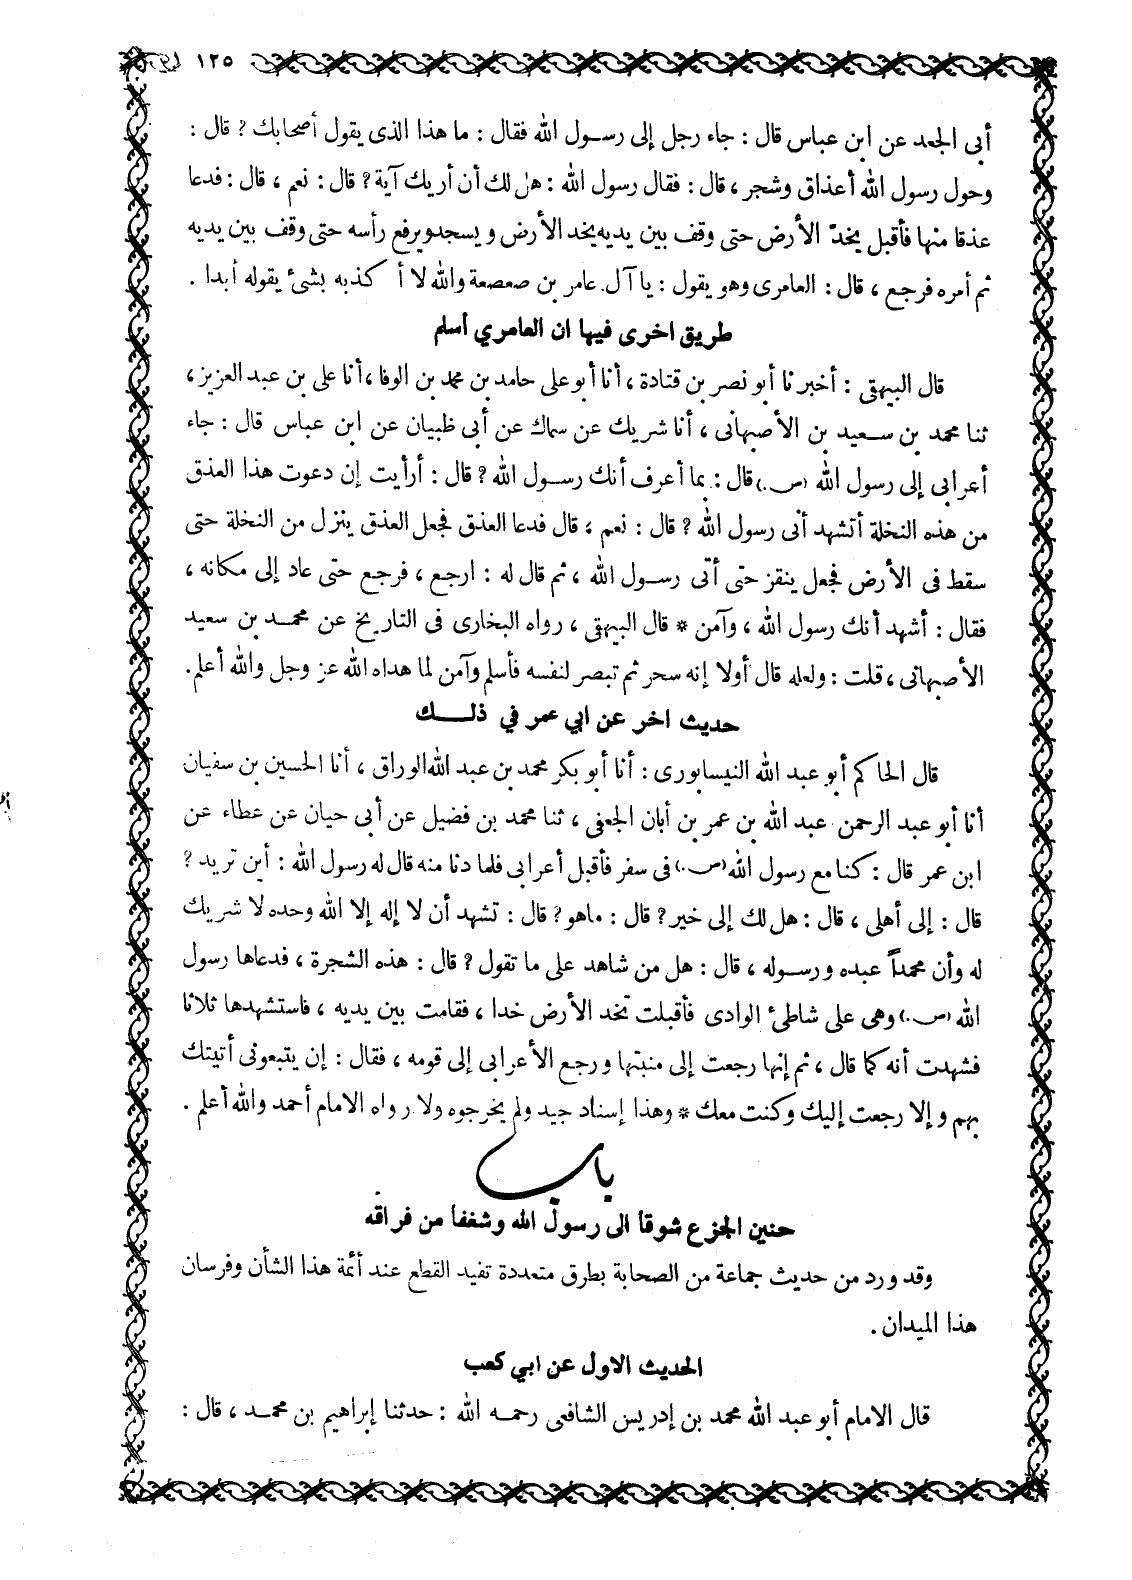 ١٢٥
أبى الجعد عن ابن عباس قال : جاء رجل إلى رسول الله فقال : ما هذا الذى يقول أصحابك ? قال :
وحول رسول الله أعذاق وشجر ، قال : فقال رسول الله : هل لك أن أريك آية ? قال : نعم ، قال : فدعا
عذقا منها فأقبل يخدّ الأرض حتى وقف بين يديه يخد الأرض ويسجد ويرفع رأسه حتى وقف بين يديه
ثم أمره فرجع ، قال : العامرى وهو يقول : يا آل عامر بن صعصعة والله لا أ كذبه بشئ يقوله أبدا .
طريق اخرى فيها ان العامري أسلم
قال البيهقى : أخبرنا أبو نصر بن قتادة ، أنا أبو على حامد بن محمد بن الوفا ، أنا على بن عبد العزيز ،
ثنا محمد بن سعيد بن الأصبهانى ، أنا شريك عن سماك عن أبى ظبيان عن ابن عباس قال : جاء
أعرابى إلى رسول الله (ص) قال : بما أعرف أنك رسول الله ? قال : أرأيت إن دعوت هذا العذق
من هذه النخلة أتشهد أنى رسول الله ? قال : نعم ، قال فدعا العذق فجعل العذق ينزل من النخلة حتى
سقط فى الأرض فجعل ينقز حتى أتى رسول الله ، ثم قال له : ارجع ، فرجع حتى عاد إلى مكانه ،
فقال : أشهد أنك رسول الله ، وآمن * قال البيهقى ، رواه البخارى فى التاريخ عن محمد بن سعيد
الأصبهانى ، قلت : ولعله قال أولا إنه سحر ثم تبصر لنفسه فأسلم وآمن لما هداه الله عز وجل والله أعلم .
حديث اخر عن ابي عمر في ذلك
قال الحاكم أبو عبد الله النيسابورى : أنا أبو بكر محمد بن عبد الله الوراق ، أنا الحسين بن سفيان
أنا أبو عبد الرحمن عبد الله بن عمر بن أبان الجعفى ، ثنا محمد بن فضيل عن أبى حيان عن عطاء عن
ابن عمر قال : كنا مع رسول الله (ص) فى سفر فأقبل أعرابى فلما دنا منه قال له رسول الله : أين تريد ?
قال : إلى أهلى ، قال : هل لك إلى خير ? قال : ماهو ? قال : تشهد أن لا إله إلا الله وحده لا شريك
له وأن محمداً عبده ورسوله ، قال : هل من شاهد على ما تقول ? قال : هذه الشجرة ، فدعاها رسول
الله (ص) وهى على شاطئ الوادى فأقبلت تخد الأرض خدا ، فقامت بين يديه ، فاستشهدها ثلاثا
فشهدت أنه كما قال ، ثم إنها رجعت إلى منبتها ورجع الأعرابى إلى قومه ، فقال : إن يتبعونى أتيتك
بهم وإلا رجعت إليك وكنت معك * وهذا إسناد جيد ولم يخرجوه ولا رواه الامام أحمد والله أعلم .
باب
حنين الجزع شوقا الى رسول الله وشغفا من فراقه
وقد ورد من حديث جماعة من الصحابة بطرق متعددة تفيد القطع عند أئمة هذا الشأن وفرسان
هذا الميدان .
الحديث الاول عن ابي كعب
قال الامام أبو عبد الله محمد بن إدريس الشافعى رحمه الله : حدثنا إبراهيم بن محمد ، قال :